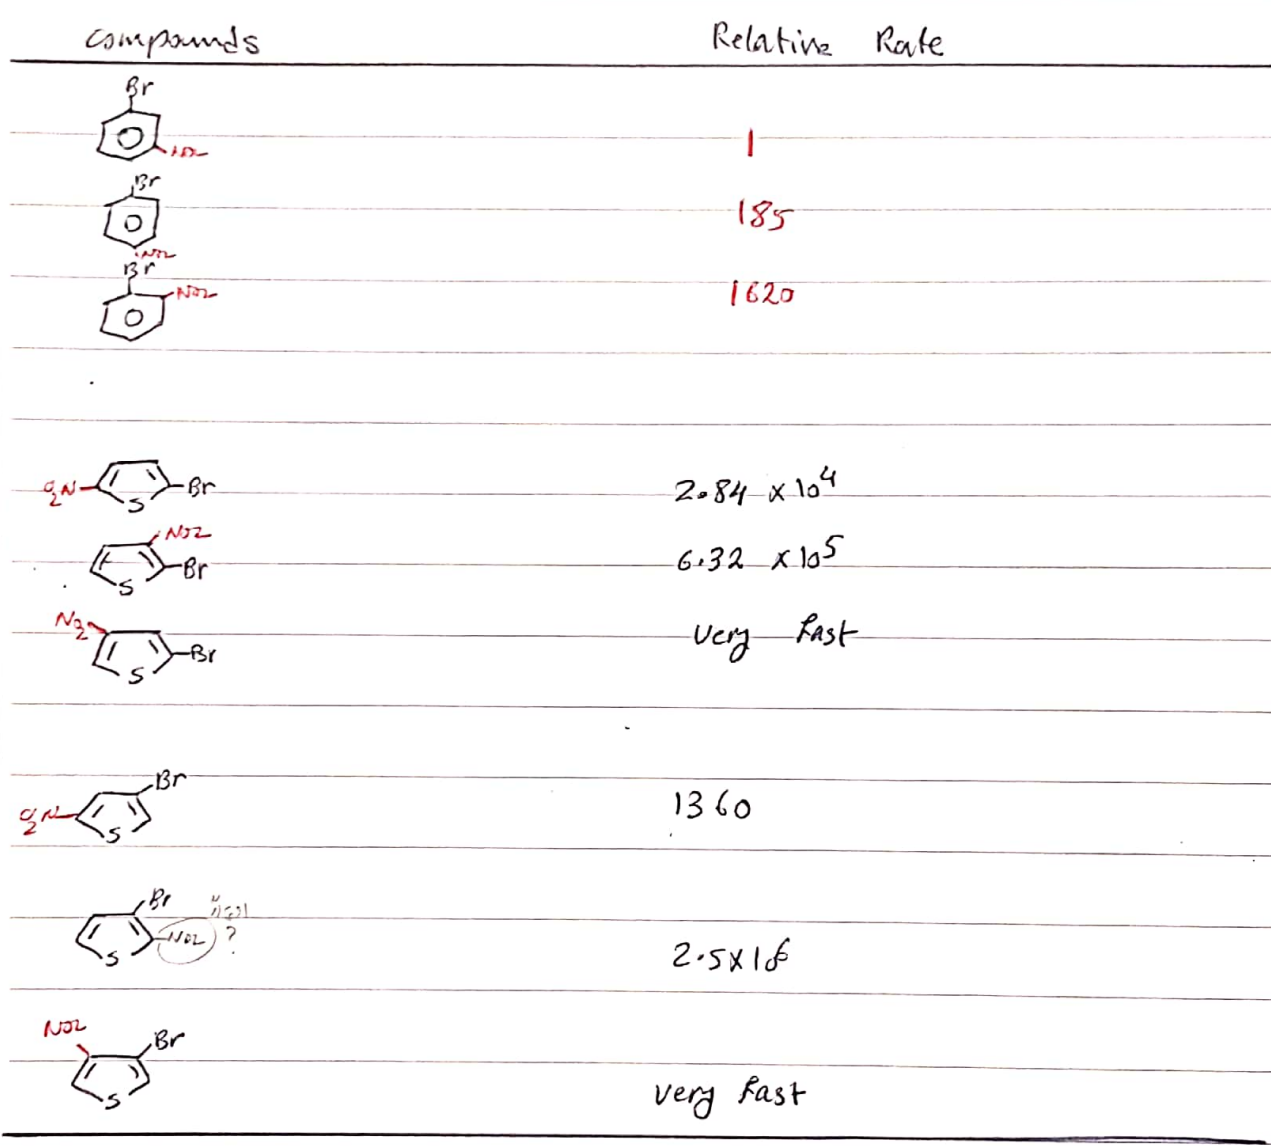 Compounds Relative Rate
Br
NO2
1
Br
185
NO2
Br
NO2
1620
O2N S Br
2.84 x 10^4
NO2
S Br
6.32 x 10^5
NO2
S Br
Very fast
Br
O2N S
1360
Br
S NO2 ?
2.5x10^6
NO2 Br
S
very fast